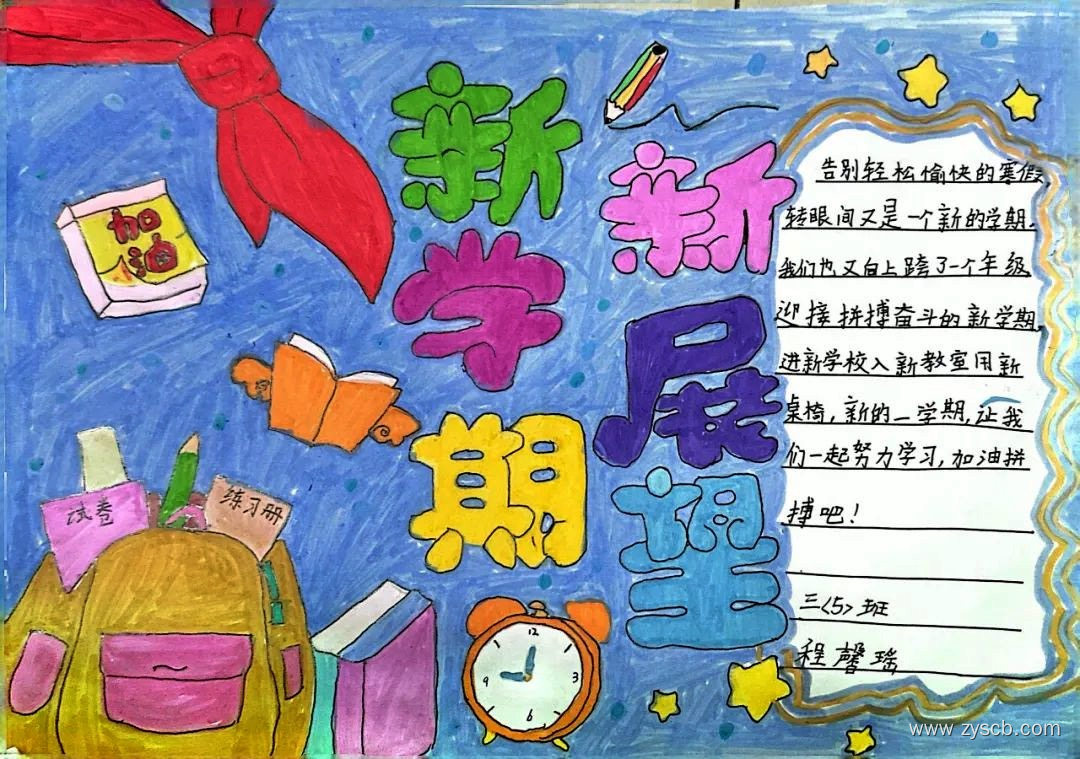 新学期
新展望
加油
试卷
练习册
12
3
6
9
告别轻松愉快的寒假,
转眼间又是一个新的学期,
我们也又向上跨了一个年级
迎接拼搏奋斗的新学期,
进新学校入新教室用新
桌椅,新的一学期,让我
们一起努力学习,加油拼
搏吧!
三<5>班
程馨瑶
www.zyscb.com